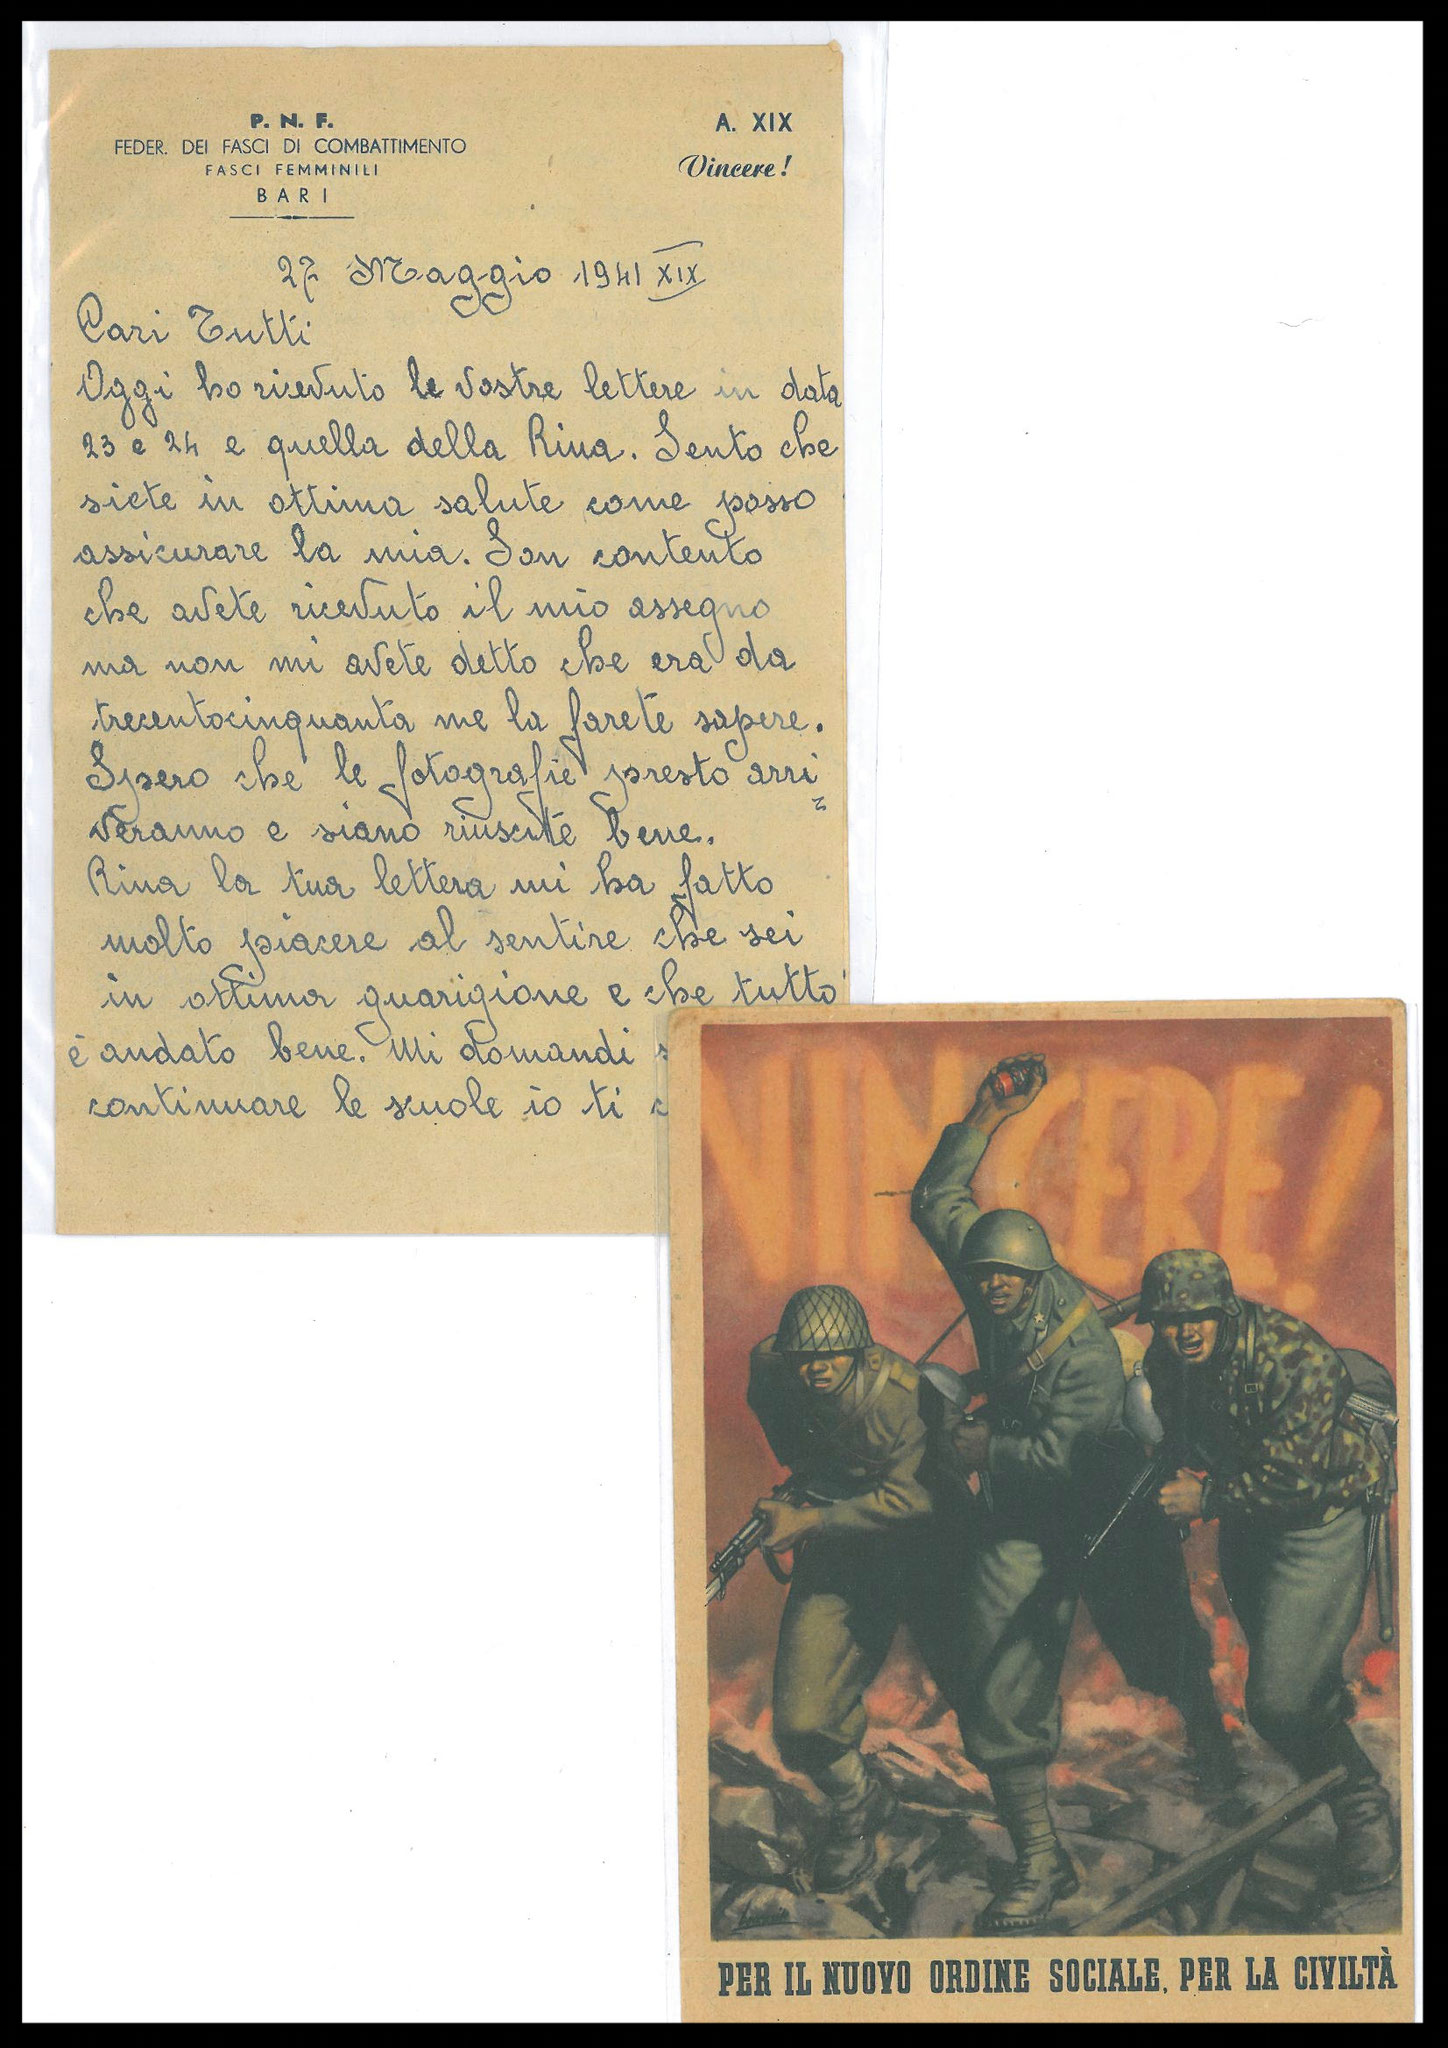 P. N. F.
FEDER. DEI FASCI DI COMBATTIMENTO
FASCI FEMMINILI
BARI
A. XIX
Vincere!
27 Maggio 1941 XIX
Cari Tutti
Oggi ho ricevuto le vostre lettere in data
23 e 24 e quella della Rina. Sento che
siete in ottima salute come posso
assicurare la mia. Son contento
che avete ricevuto il mio assegno
ma non mi avete detto che era da
trecentocinquanta me la farete sapere.
Spero che le fotografie presto arri
veranno e siano riuscite bene.
Rina la tua lettera mi ha fatto
molto piacere al sentire che sei
in ottima guarigione e che tutto
è andato bene. Mi domandi
continuare le scuole io ti
VINCERE!
PER IL NUOVO ORDINE SOCIALE, PER LA CIVILTÀ